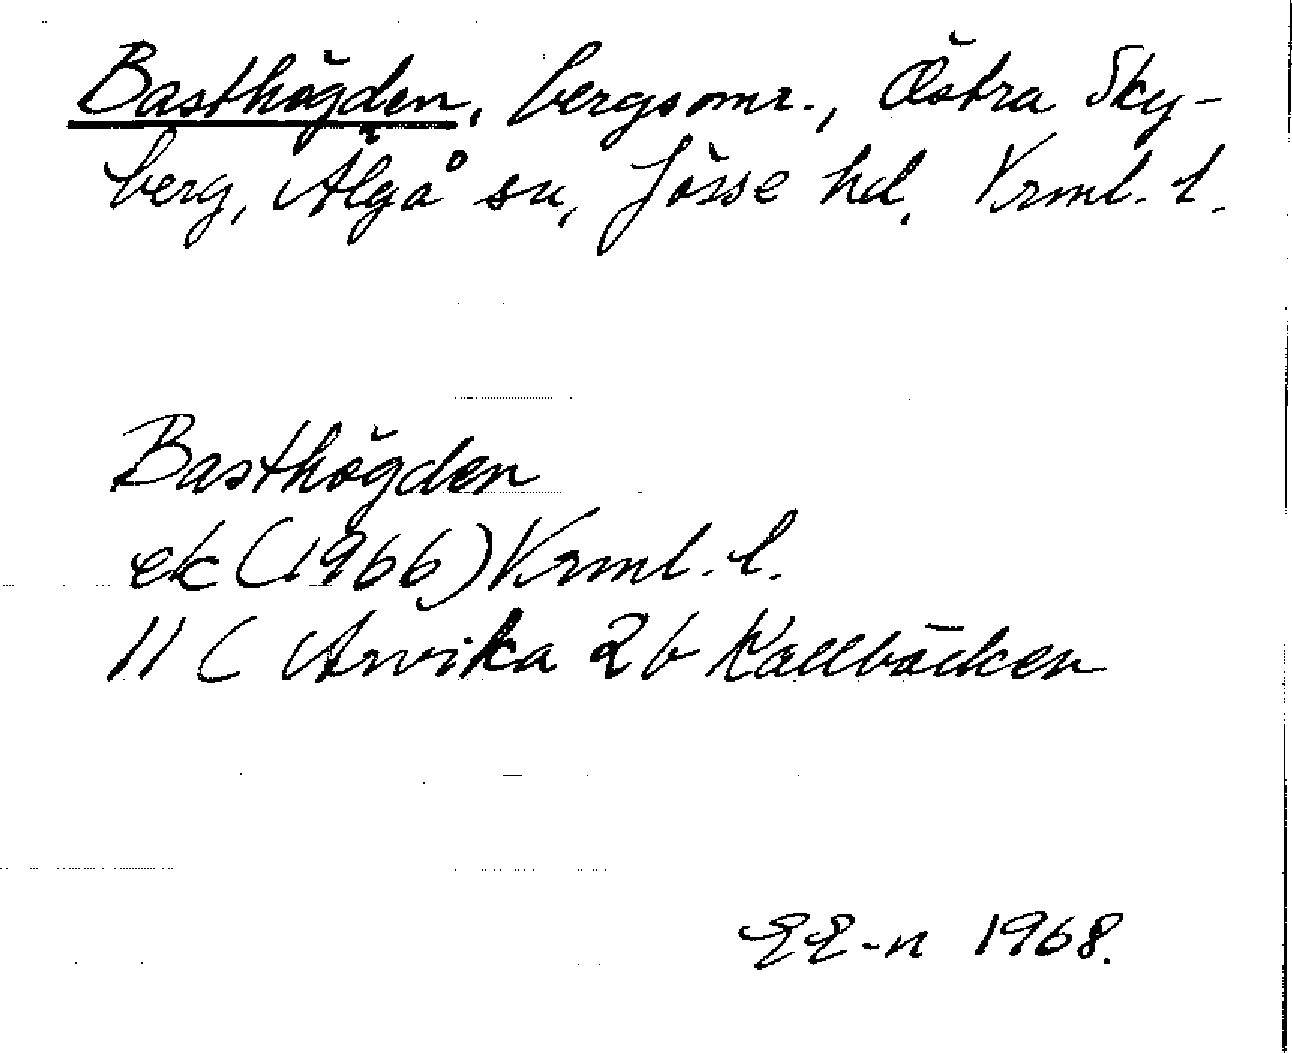 Basthögden, bergsomr., Östra Sky-
berg, Älgå sn, Jösse hd, Vrml. l.
Basthögden
ek (1966) Vrml. l.
11 C Arvika 2b Kallbäcken
EE-n 1968.